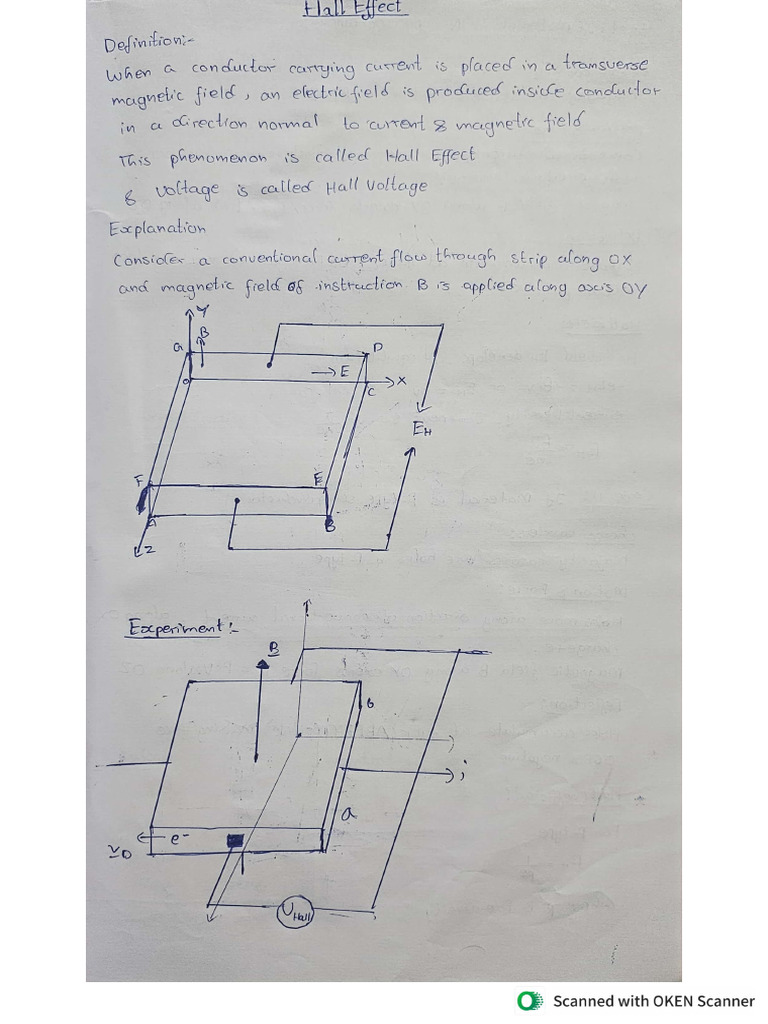 Hall Effect
Definition:-
When a conductor carrying current is placed in a transverse
magnetic field, an electric field is produced inside conductor
in a direction normal to current & magnetic field
This phenomenon is called Hall Effect
& Voltage is called Hall Voltage
Explanation
Consider a conventional current flow through strip along OX
and magnetic field of instruction B is applied along axis OY
Y
B
G
D
→ E
X
O
C
EH
F
E
A
B
Z
Experiment:-
B
b
i
a
e-
VD
UHall
Scanned with OKEN Scanner